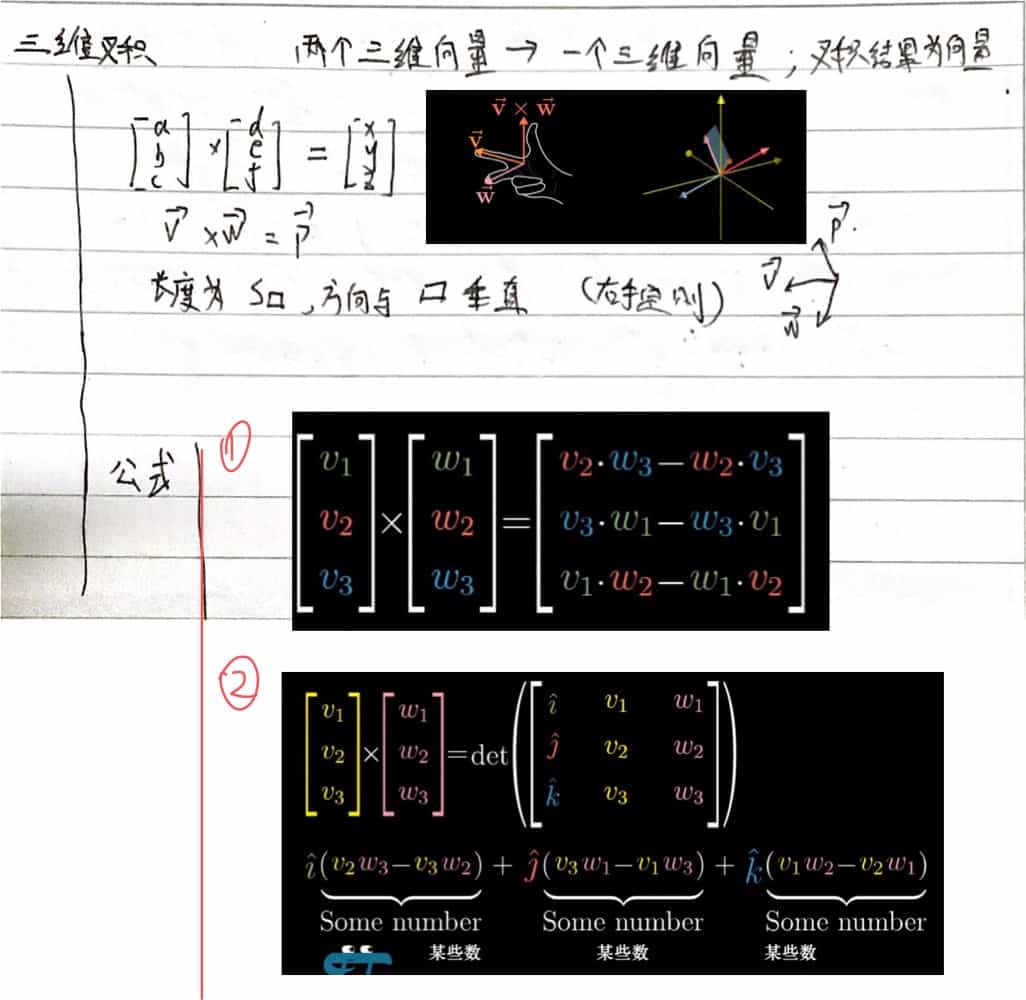 三维叉积 两个三维向量 → 一个三维向量；叉积结果为向量.
[a b c] × [d e f] = [x y z]
v⃗ × w⃗
v⃗
w⃗
v⃗ × w⃗ = p⃗
长度为 S□，方向与 □ 垂直 (右手定则)
p⃗.
v⃗
w⃗
公式
①
[v₁ v₂ v₃] × [w₁ w₂ w₃] = [v₂·w₃ − w₂·v₃
v₃·w₁ − w₃·v₁
v₁·w₂ − w₁·v₂]
②
[v₁ v₂ v₃] × [w₁ w₂ w₃] = det([î v₁ w₁
ĵ v₂ w₂
k̂ v₃ w₃])
î(v₂w₃−v₃w₂) + ĵ(v₃w₁−v₁w₃) + k̂(v₁w₂−v₂w₁)
Some number Some number Some number
某些数 某些数 某些数